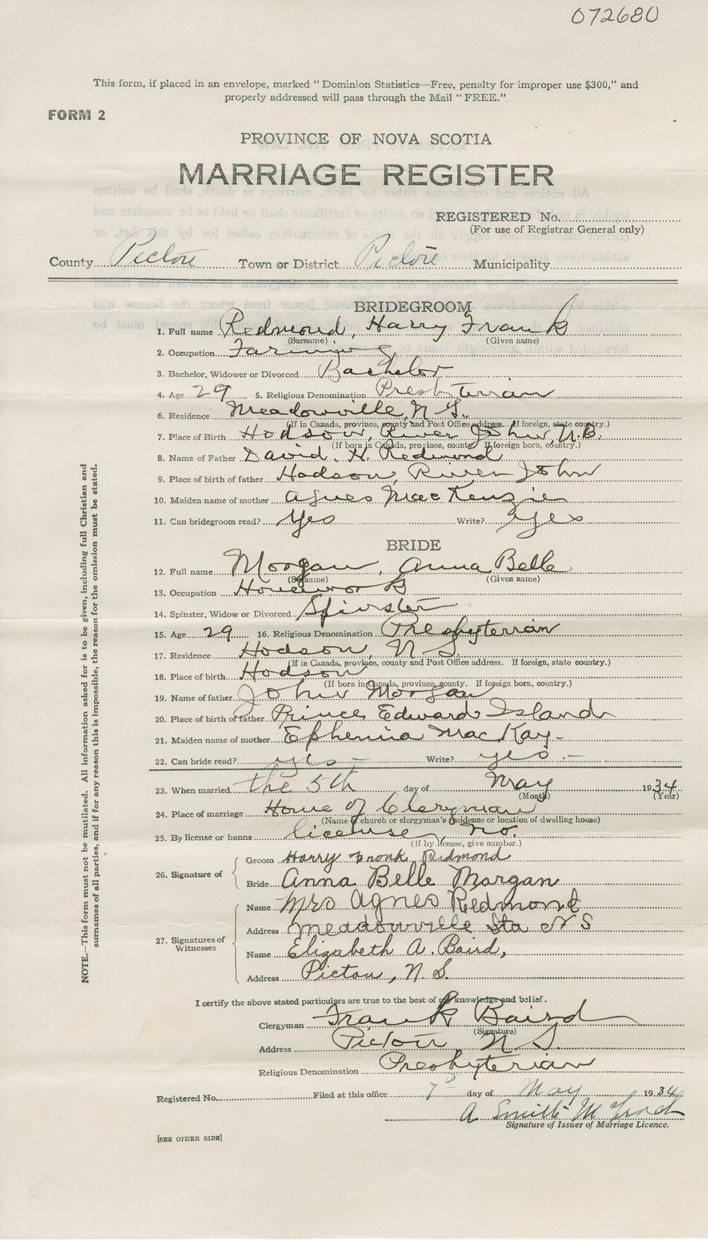 072680
This form, if placed in an envelope, marked "Dominion Statistics—Free, penalty for improper use $300," and
properly addressed will pass through the Mail "FREE."
FORM 2
PROVINCE OF NOVA SCOTIA
MARRIAGE REGISTER
REGISTERED No.
(For use of Registrar General only)
County Pictou Town or District Pictou Municipality
BRIDEGROOM
1. Full name Redmond, Harry Frank
(Surname) (Given name)
2. Occupation Farming
3. Bachelor, Widower or Divorced Bachelor
4. Age 29 5. Religious Denomination Presbterrian
6. Residence Meadowville, N.S.
(If in Canada, province, county and Post Office address. If foreign, state country.)
7. Place of Birth Hodson, River John, N.B.
(If born in Canada, province, county. If foreign born, country.)
8. Name of Father David H. Redmond
9. Place of birth of father Hodson, River John
10. Maiden name of mother Agnes MacKenzie
11. Can bridegroom read? Yes Write? Yes
BRIDE
12. Full name Morgan, Anna Belle
(Surname) (Given name)
13. Occupation Housework
14. Spinster, Widow or Divorced Spinster
15. Age 29 16. Religious Denomination Presbyterrian
17. Residence Hodson, N.S.
(If in Canada, province, county and Post Office address. If foreign, state country.)
18. Place of birth Hodson
(If born in Canada, province, county. If foreign born, country.)
19. Name of father John Morgan
20. Place of birth of father Prince Edward Island
21. Maiden name of mother Ephemia MacKay-
22. Can bride read? yes - Write? yes. -
23. When married the 5th day of May 1934
(Month) (Year)
24. Place of marriage Home of Clergyman
(Name of church or clergyman's residence or location of dwelling house)
25. By license or banns license, no.
(If by license, give number.)
26. Signature of
Groom Harry Frank Redmond
Bride Anna Belle Morgan
27. Signatures of Witnesses
Name Mrs Agnes Redmond
Address Meadowville Sta N S
Name Elizabeth A. Baird,
Address Pictou, N.S.
I certify the above stated particulars are true to the best of my knowledge and belief.
Clergyman Frank Baird
(Signature)
Address Pictou N S.
Religious Denomination Presbyterian
Registered No. Filed at this office 7th day of May 1934
A
Signature of Issuer of Marriage Licence.
[SEE OTHER SIDE]
NOTE.—This form must not be mutilated. All information asked for is to be given, including full Christian and
surnames of all parties, and if for any reason this is impossible, the reason for the omission must be stated.